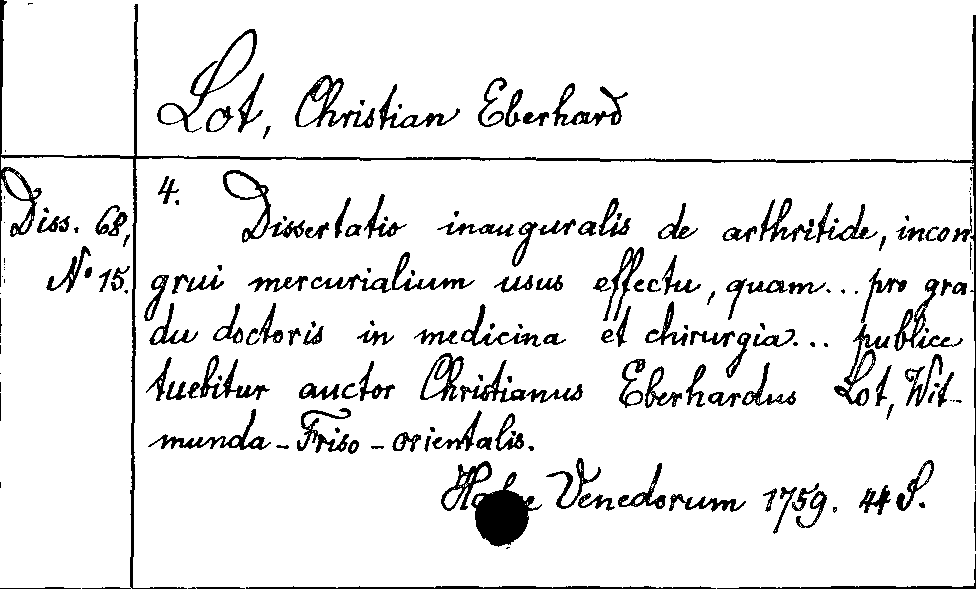 Lot, Christian Eberhard
Diss. 68,
No 15.
4.
Dissertatio inauguralis de arthritide, incon-
grui mercurialium usus effectu, quam... pro gra-
du doctoris in medicina et chirurgia... publice
tuebitur auctor Christianus Eberhardus Lot, Wit-
munda-Friso-orientalis.
Venedorum 1759. 44 S.